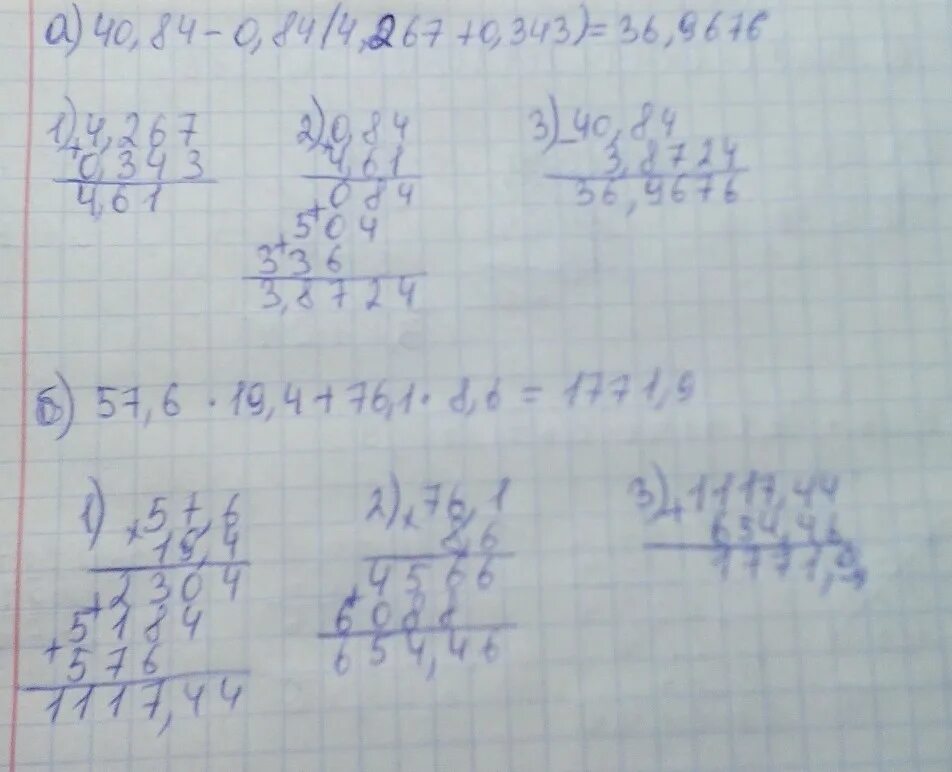 а) 40,84 - 0,84(4,267 + 0,343) = 36,9676
1) + 4,267
0,343
4,61
2) × 0,84
4,61
084
+ 504
+ 336
3,8724
3) - 40,84
3,8724
36,9676
б) 57,6 · 19,4 + 76,1 · 8,6 = 1771,9
1) × 57,6
19,4
2304
+ 5184
+ 576
1117,44
2) × 76,1
8,6
4566
+ 6088
654,46
3) + 1117,44
654,46
1771,9